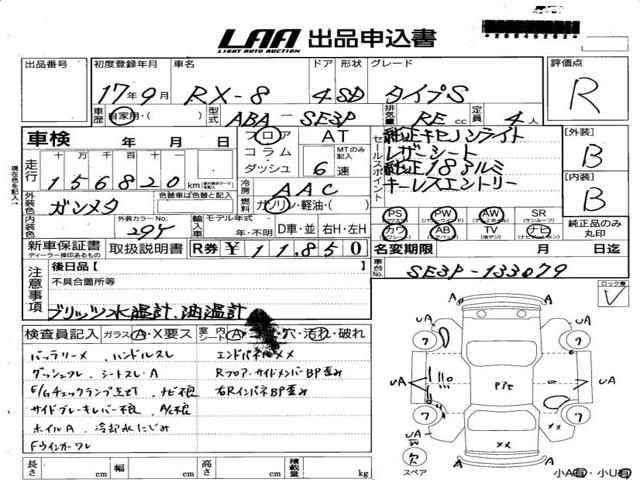 LAA 出品申込書
LIGHT AUTO AUCTION
出品番号 初度登録年月 車名 ドア 形状 グレード 評価点
17年9月 RX-8 4 SD タイプS R
車歴 自家用・( ) 型式 ABA-SE3P 排気量 RE cc 定員 4人
車検 年 月 日 フロア AT セールスポイント 純正キセノンライト 【外装】
コラム MTのみ記入 レザーシート B
走行 十万 万 千 百 十 一 ダッシュ 6速 純正18アルミ
156820km 冷房 AAC キーレスエントリー 【内装】
現在色を記入 外装色 ガンメタ 色替車は色替と記入 燃料 ガソリン・軽油・( ) B
PS PW AW SR(サンルーフ)
内装色 外装カラーNo. 294 輸入車 モデル年式 年・不明 D車・並 右H・左H カワ AB TV ナビ 純正品のみ丸印
新車保証書 取扱説明書 R券 ¥11,850 名変期限 月 日迄
ディーラー捺印あるもの
注意事項 後日品【 】 車台No. SE3P-133079
不具合箇所等 ロック車
ブリッツ水温計、油温計
検査員記入 ガラス A・X要ス 室内シート A・穴・汚れ・破れ
バッテリーメ、ハンドルスレ エンドパネルメメ
ダッシュワレ、シートスレ・A Rフロア・サイドメンバーBP歪み
E/Gチェックランプ点灯、ナビ不良 右RインパネBP歪み
サイドブレーキレバー不良、A/C不良
ホイルA、冷却水にじみ
Fウインカーワレ
長さ cm 幅 cm 高さ cm 積載量 kg
UA
UA
UA
7
7
7
7
UA
UA
スペア
小A有・小U有